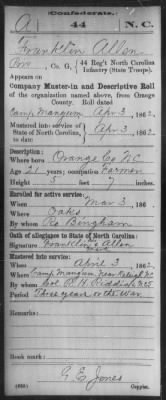 (Confederate.)
A 44 N.C.
Franklin Allen
Pvt, Co. G, 44 Reg't North Carolina
Infantry (State Troops).
Appears on
Company Muster-in and Descriptive Roll
of the organization named above, from Orange
County. Roll dated
Camp Mangum Apr 3, 1862.
Mustered into service of
State of North Carolina, Apr 3, 1862.
Description:
Where born Orange Co NC
Age 21 years; occupation Farmer
Height feet, 7 inches.
Enrolled for active service:
When Mar 3, 186
Where Oaks
By Ro Bingham
Oath of allegiance to State of North Carolina:
Signature Franklin Allen
Mustered into service:
When April 3, 1862
Where Camp Mangum Near Raleigh NC
By Col R. H. Riddick
Period Three years or the war
Remarks:
Book mark:
G E Jones
Copyist.